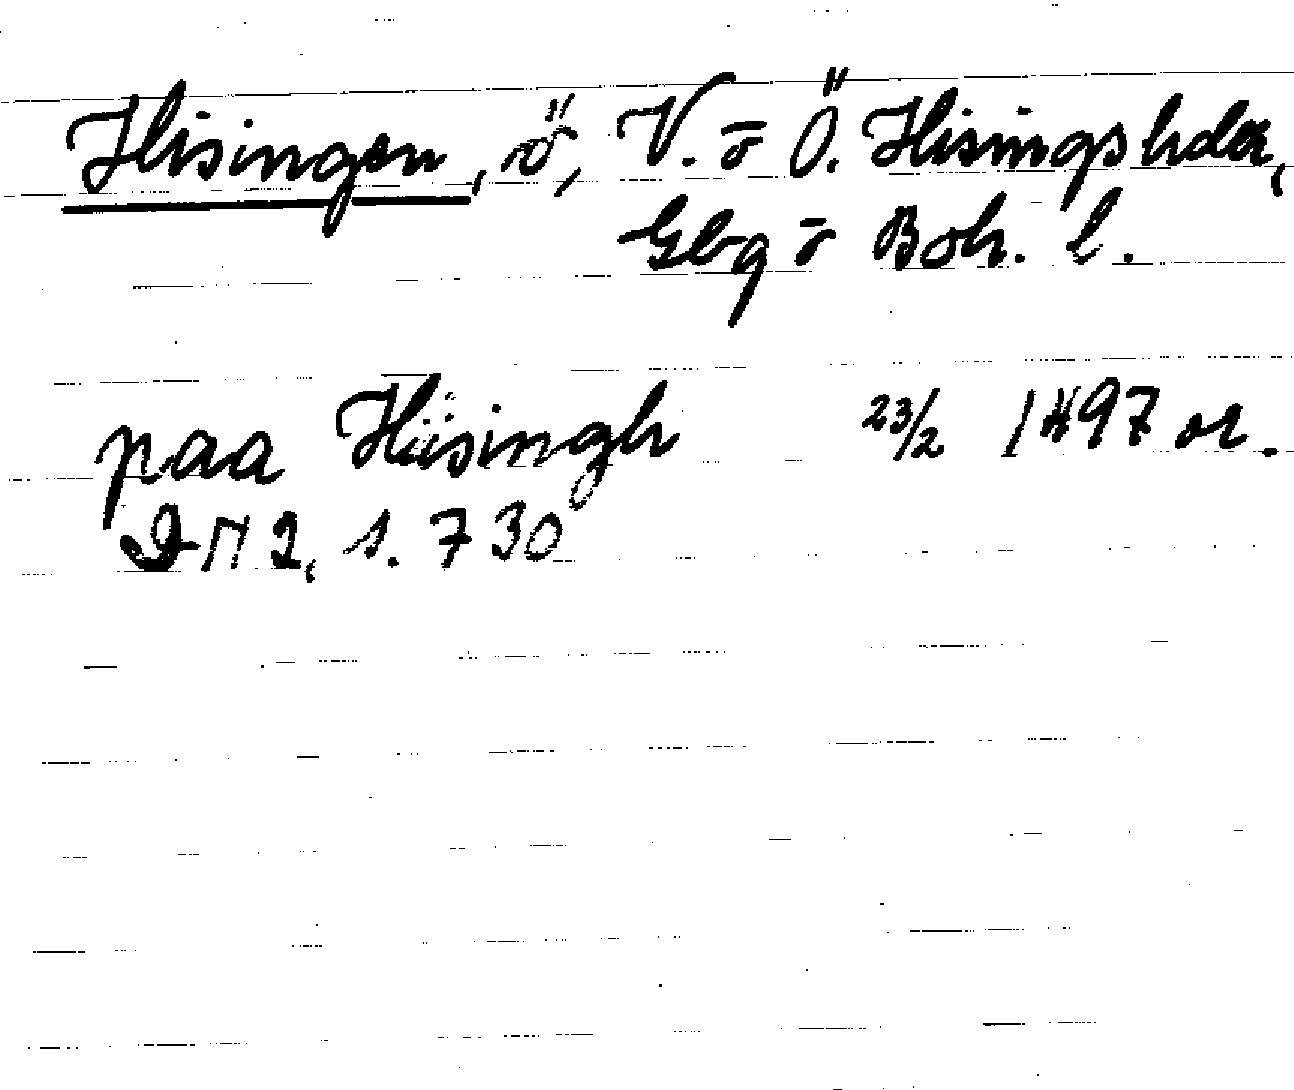 Hisingen, ö, V. o Ö. Hisings hder,
Gbg o Boh. l.
paa Hiisingh 23/2 1497 or.
DN 2, s. 730